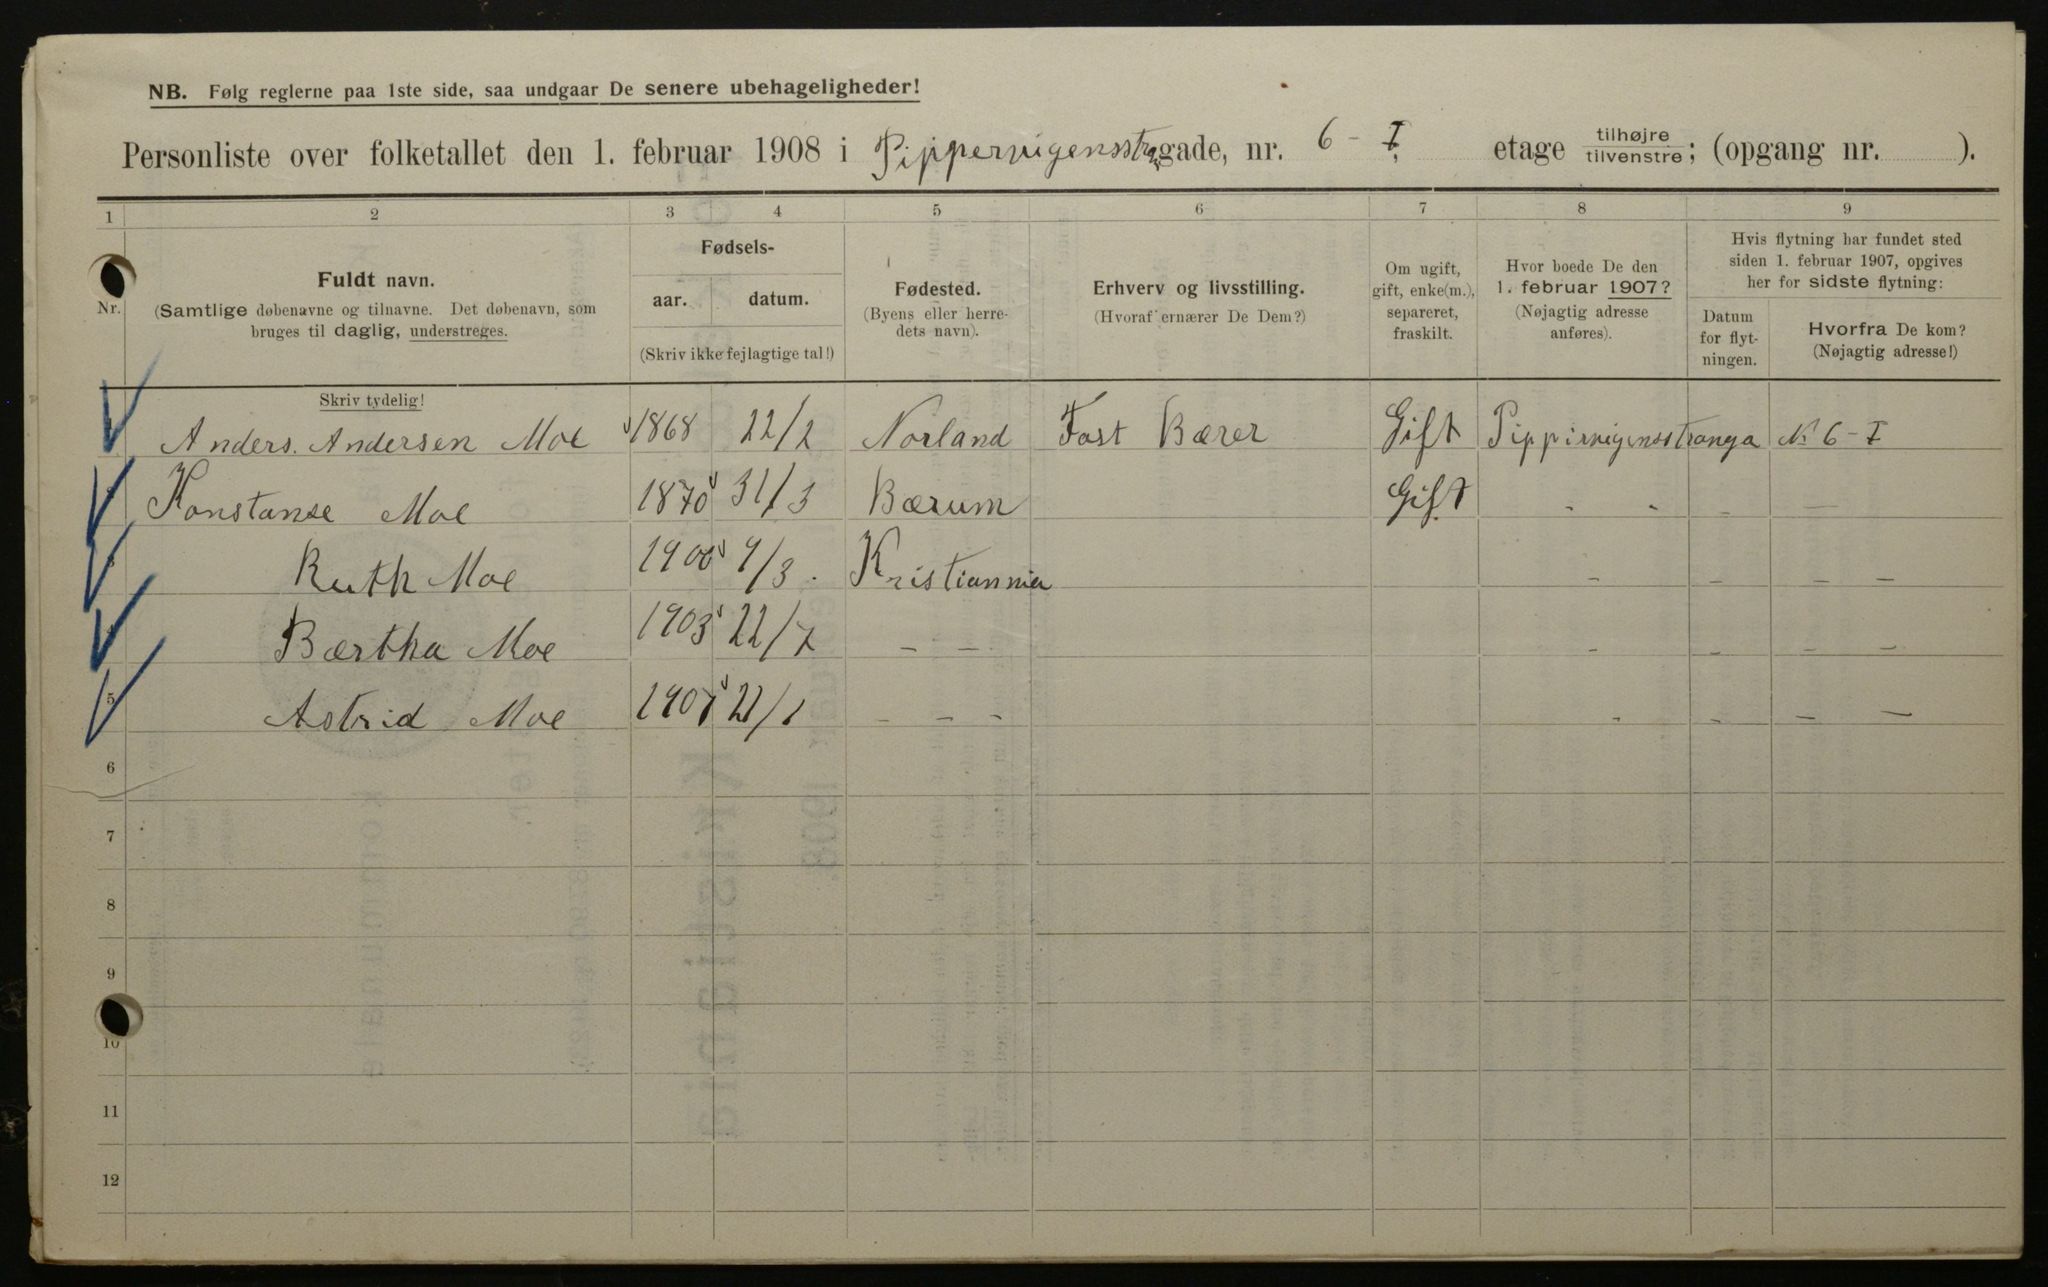 NB. Følg reglerne paa 1ste side, saa undgaar De senere ubehageligheder!
Personliste over folketallet den 1. februar 1908 i Pippervigensstrangade, nr. 6 - I etage tilhøjre/tilvenstre; (opgang nr. ).
1 2 3 4 5 6 7 8 9
Nr.
Fuldt navn.
(Samtlige døbenavne og tilnavne. Det døbenavn, som
bruges til daglig, understreges.
Skriv tydelig!
Fødsels-
aar. datum.
(Skriv ikke fejlagtige tal!)
Fødested.
(Byens eller herre-
dets navn).
Erhverv og livsstilling.
(Hvoraf ernærer De Dem?)
Om ugift,
gift, enke(m.),
separeret,
fraskilt.
Hvor boede De den
1. februar 1907?
(Nøjagtig adresse
anføres).
Hvis flytning har fundet sted
siden 1. februar 1907, opgives
her for sidste flytning:
Datum
for flyt-
ningen.
Hvorfra De kom?
(Nøjagtig adresse!)
Anders. Andersen Moe 1868 22/2 Norland Fast Bærer Gift Pippirvigensstranga N. 6 - I
Konstanse Moe 1870 31/3 Bærum Gift - - - —
3 Ruth Moe 1900 9/3. Kristiannia - - - -
4 Bærtha Moe 1903 22/7 - - - - - -
5 Astrid Moe 1907 21/1 - - - - - - -
6
7
8
9
10
11
12